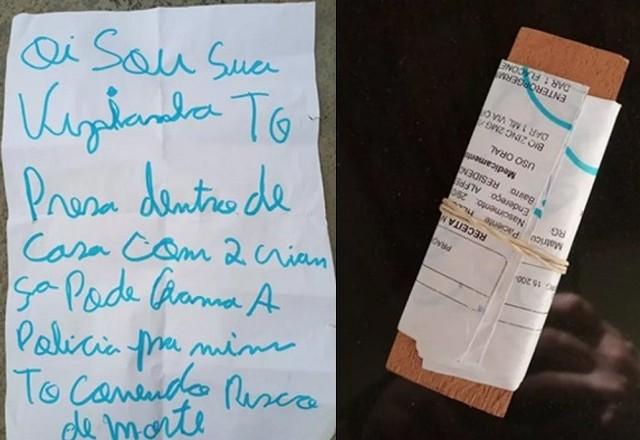 Oi Sou Sua
To
Presa dentro de
Casa Com 2 crian
ça Pode Chama A
Policia pra mim
To Correndo Risco
de morte
RECEITA M
Paciente
Nascimento: 29
Endereço: ALFRE
Bairro: RESIDEN
Medicamento
USO ORAL
BIO ZINC 2MG
DAR 1 ML VIA O
ENTEROGERMI
DAR 1 FLACONE
Matrícu
RG
PRAC